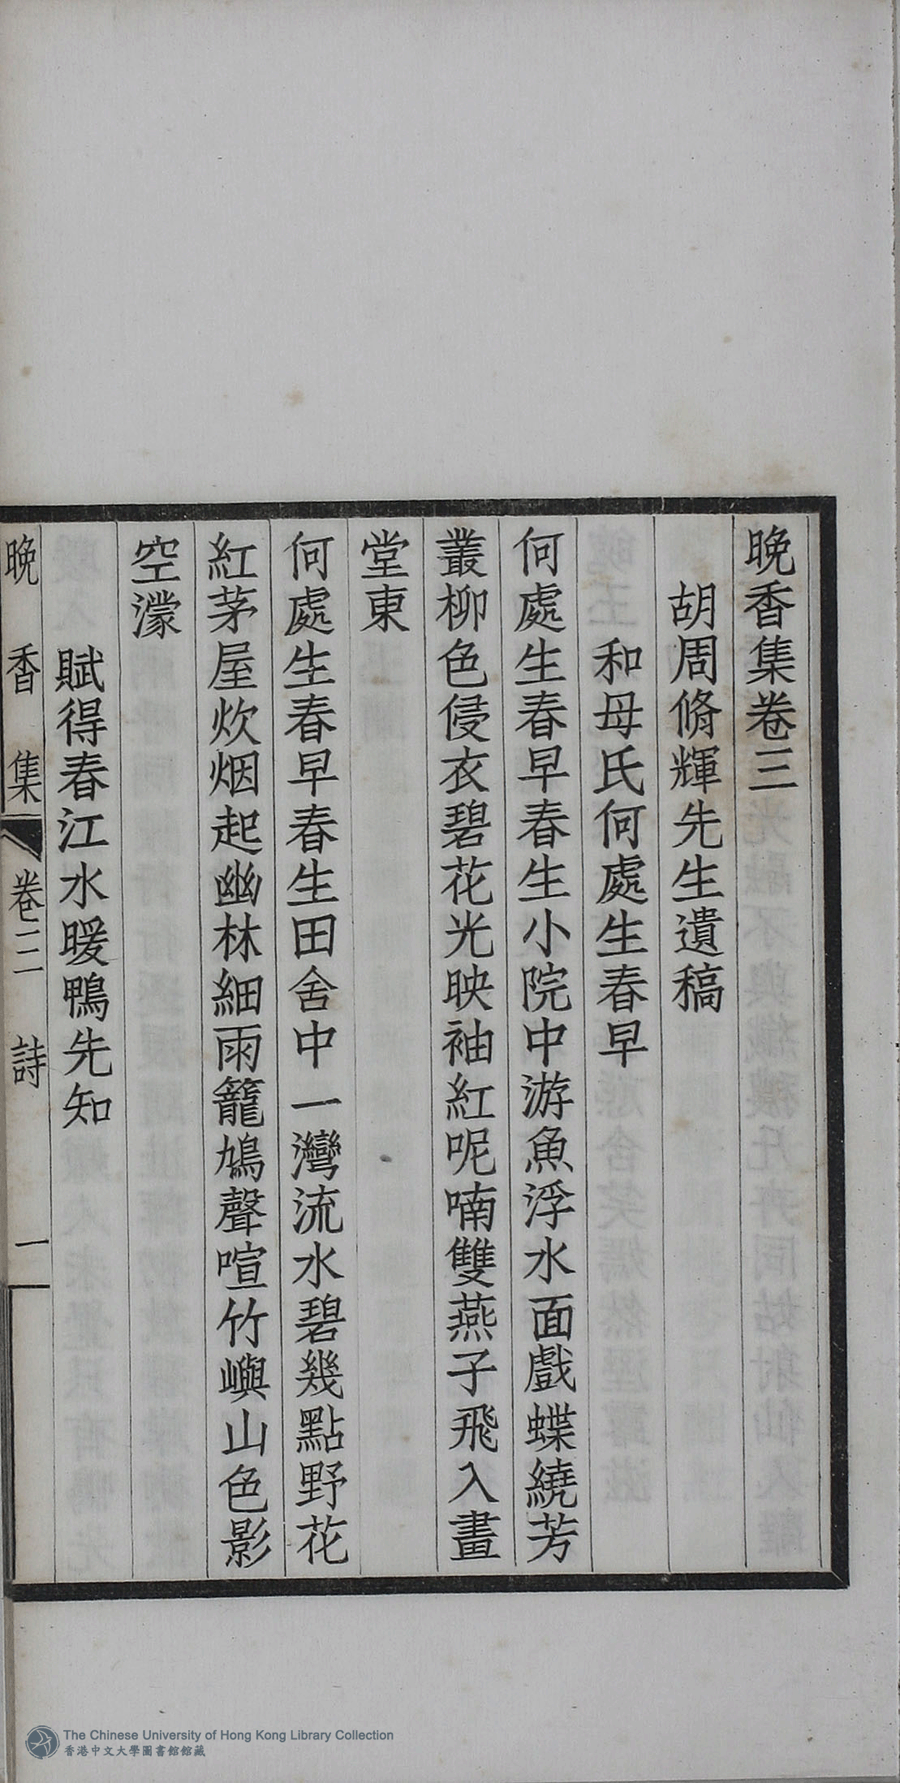 晚香集卷三
胡周脩輝先生遺稿
和母氏何處生春早
何處生春早春生小院中游魚浮水面戲蝶繞芳
叢柳色侵衣碧花光映袖紅呢喃雙燕子飛入畫
堂東
何處生春早春生田舍中一灣流水碧幾點野花
紅茅屋炊烟起幽林細雨籠鳩聲喧竹嶼山色影
空濛
賦得春江水暖鴨先知
晚香集 卷三 詩 一
The Chinese University of Hong Kong Library Collection
香港中文大學圖書館館藏